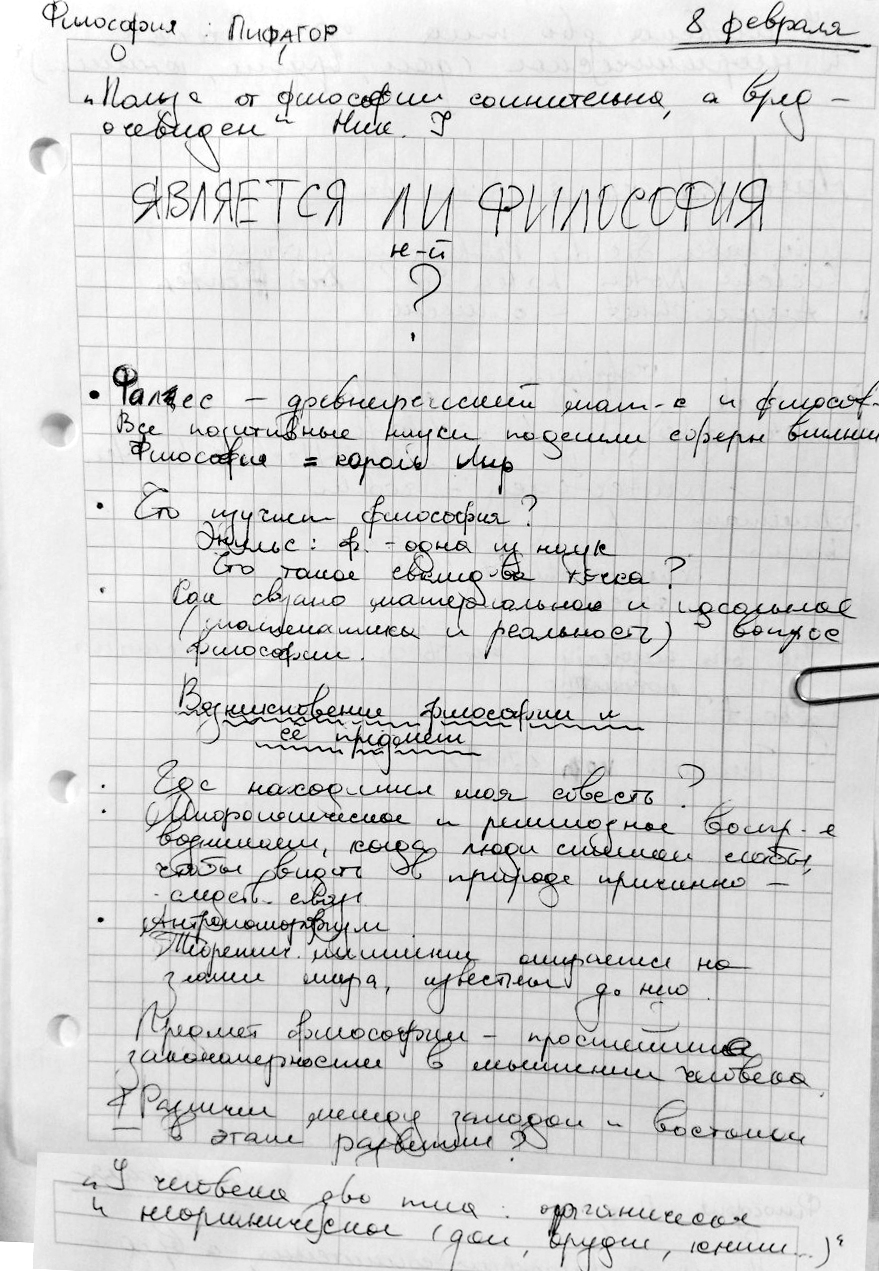 Философия : ПИФАГОР
8 февраля
„Польза от философии сомнительна, а вред –
очевиден“ Ник. I
ЯВЛЯЕТСЯ ЛИ ФИЛОСОФИЯ
н-й
?
• Фалес – древнегреческий мат-к и философ.
Все позитивные науки поделили сферы влияния
Философия = король Лир
• Что изучает философия?
Энгельс: ф. - одна из наук
Что такое точка?
• Как связано материальное и идеальное
(математика и реальность) вопрос
философии.
Возникновение философии и
её предмет
• Где находится моя совесть?
• Мифологическое и религиозное воспр-е
возникает, когда люди слишком слабы,
чтобы видеть в природе причинно –
следств. связи
• Антропоморфизм
Теоретич. мышление опирается на
знание мира, известные до него.
Предмет философии – простейшие
закономерности в мышлении человека.
Различия между западом и востоком
в этапе развития?
„У человека два тела: органическое
и неорганическое (дом, орудие, книги...)“